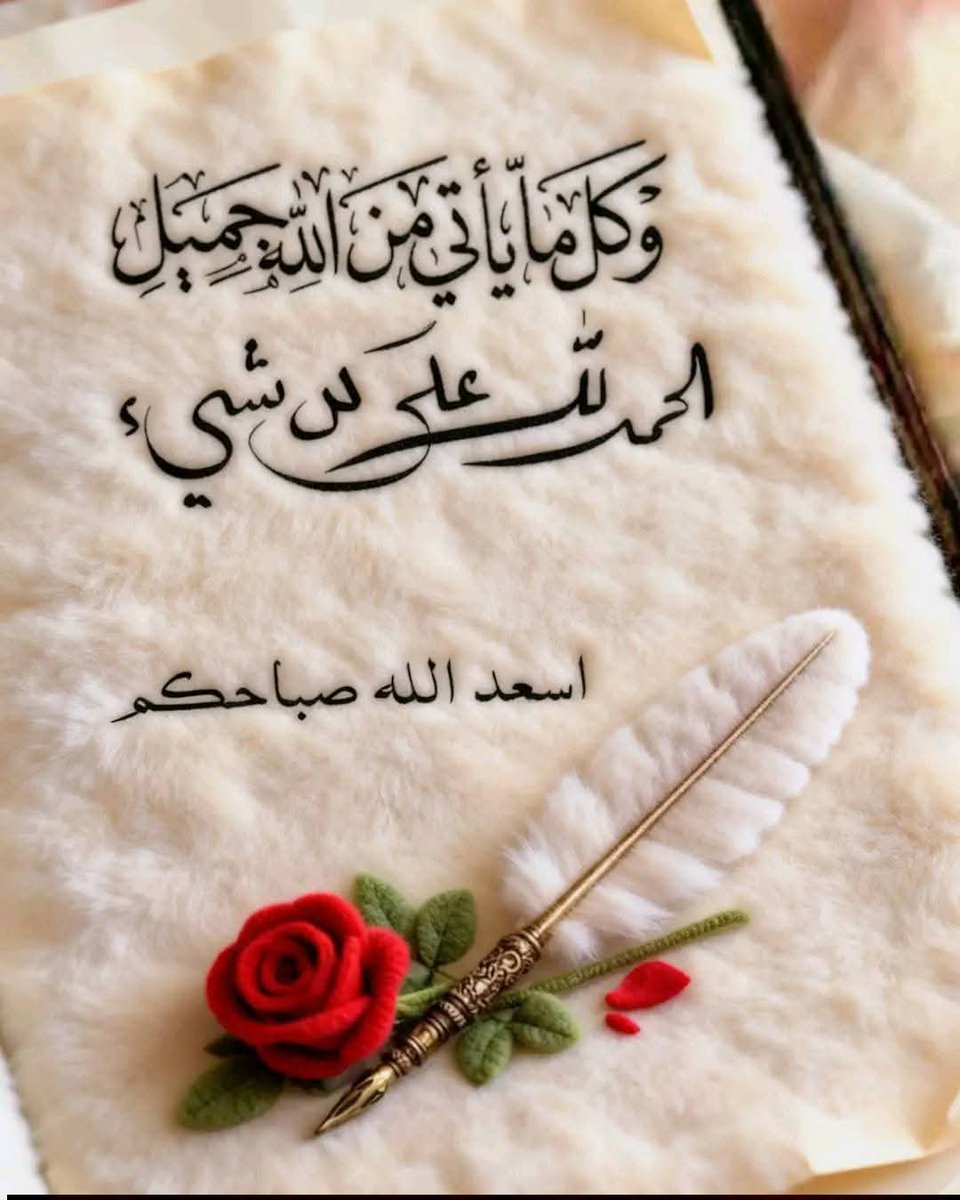 وَكُل مَا يَأتي مَن اللّٰهِ جَمِيَلِ
الحمد لله على كل شيء
اسعد الله صباحكم